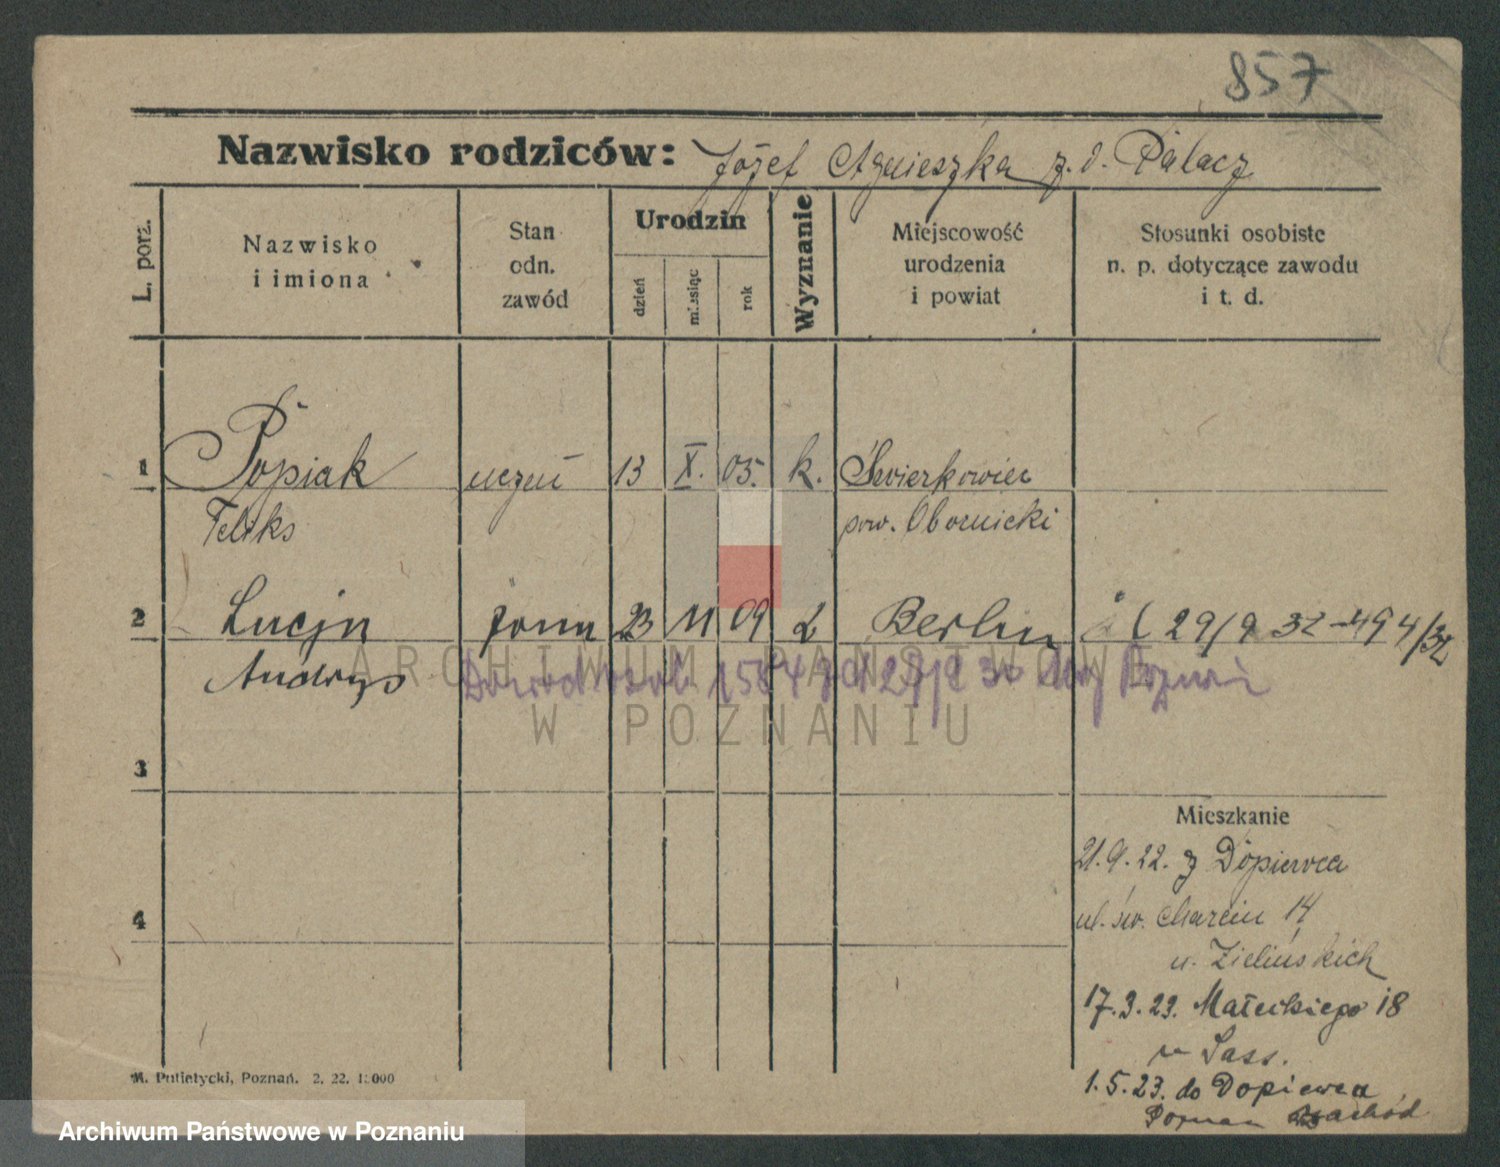 857
Nazwisko rodziców: Józef Agnieszka z. d. Pałacz
L. porz.
Nazwisko
i imiona
Stan
odn.
zawód
Urodzin
dzień
miesiąc
rok
Wyznanie
Miejscowość
urodzenia
i powiat
Stosunki osobiste
n. p. dotyczące zawodu
i t. d.
1 Popiak uczeń 13 X. 05. k. Świerkowiec
Feliks pow. Obornicki
2 Lucjn żona 23 11 09 Berlin 29/9 32 - 494/32
Dowód osob 1584 Poznań
3
Mieszkanie
21.9.22. z Dopiewca
4
ul. św. Marcin 14
u. Zielińskich
17.3.23. Małeckiego 18
u Sass.
1.5.23. do Dopiewca
Poznan Zachód
M. Putiatycki, Poznań. 2. 22. 1:000
ARCHIWUM PAŃSTWOWE
W POZNANIU
Archiwum Państwowe w Poznaniu